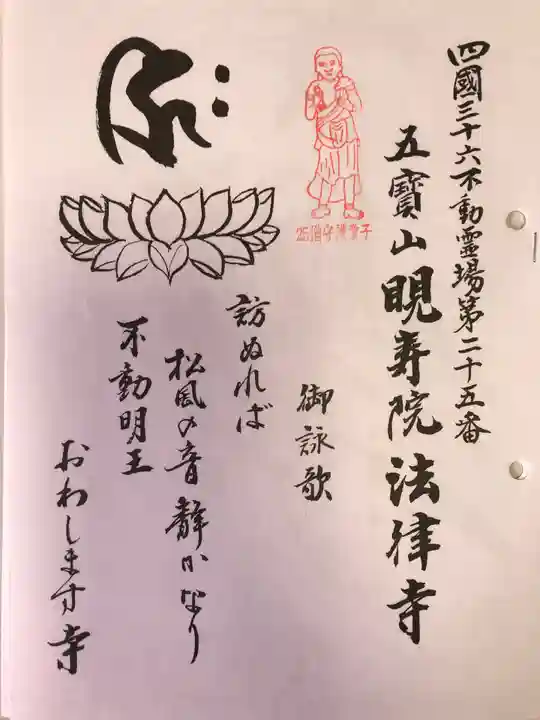 四國三十六不動霊場第二十五番
五寶山 晛寿院 法律寺
御詠歌
訪ぬれば
松風の音 静かなり
不動明王
おわします寺